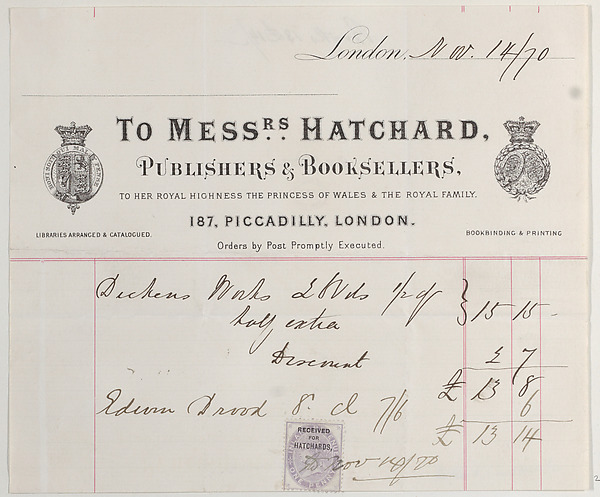 London, Nov. 14/70
TO MESSRS HATCHARD,
PUBLISHERS & BOOKSELLERS,
TO HER ROYAL HIGHNESS THE PRINCESS OF WALES & THE ROYAL FAMILY.
187, PICCADILLY, LONDON.
LIBRARIES ARRANGED & CATALOGUED.
BOOKBINDING & PRINTING
Orders by Post Promptly Executed.
Dickens Works Vols 1/2 gf } 15 15
half extra
Discount 2 7
£ 13 8
Edwin Drood 8. cl 7/6 6
£ 13 14
RECEIVED
FOR
HATCHARDS,
Nov 14/70